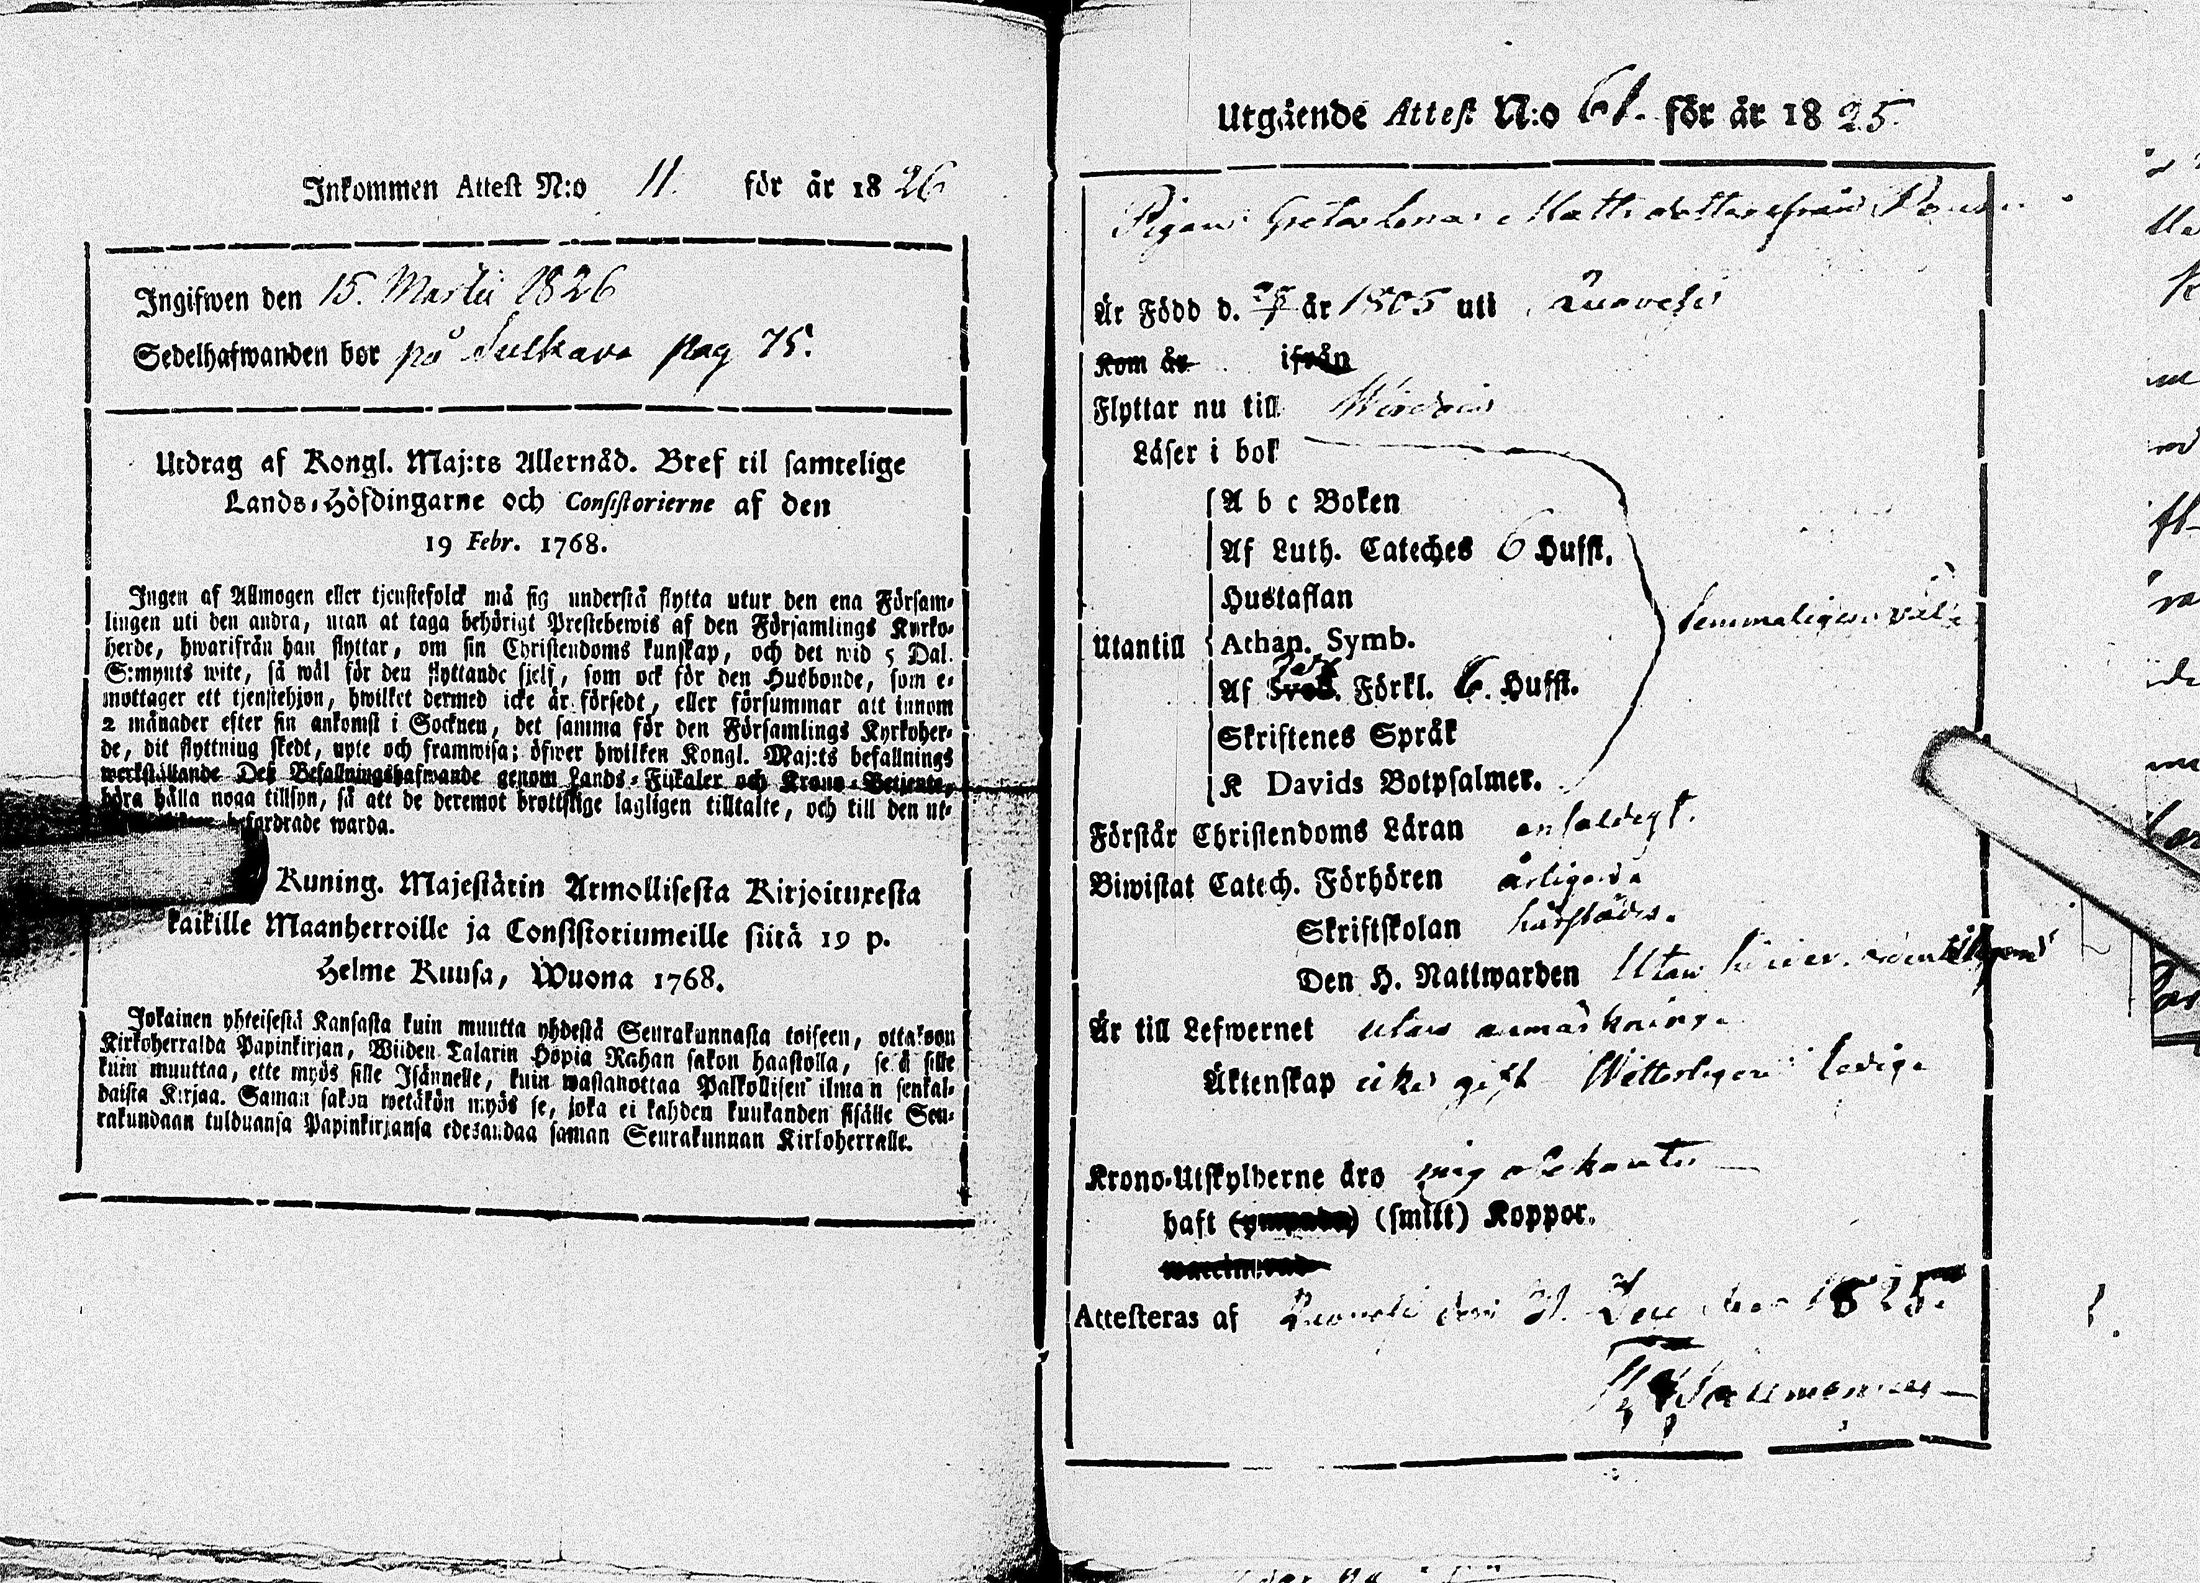 Inkommen Attest N:o 11. för år 1826
Ingifwen den 15. Martii 1826
Sedelhafwanden bor på Sulkava pag 75.
Utdrag af Kongl. Maj:ts Allernåd. Bref til samtelige
Lands-Höfdingarne och Consistorierne af den
19 Febr. 1768.
Ingen af Allmogen eller tjenstefolck må sig understå flytta utur den ena Försam-
lingen uti den andra, utan at taga behörigt Prestebewis af den Församlings Kyrko-
herde, hwarifrån han flyttar, om sin Christendoms kunskap, och det wid 5 Dal.
S:mynts wite, så wäl för den flyttande sjelf, som ock för den Husbonde, som e-
mottager ett tjenstehjon, hwilket dermed icke är försedt, eller försummar att innom
2 månader efter sin ankomst i Socknen, det samma för den Församlings Kyrkoher-
de, dit flyttning skedt, upte och framwisa; öfwer hwilken Kongl. Maj:ts befallnings
werkställande Deß Befallningshafwande genom Lands-Fiskaler och Krono-Betjente,
böra hålla noga tillsyn, så att de deremot brottslige lagligen tilltalte, och till den ut-
befordrade warda.
Kuning. Majestätin Armollisesta Kirjoituxesta
kaikille Maanherroille ja Consistoriumeille siitä 19 p.
Helme Kuusa, Wuona 1768.
Jokainen yhteisestä Kansasta kuin muutta yhdestä Seurakunnasta toiseen, ottakoon
Kirkoherralda Papinkirjan, Wiiden Talarin Hopia Rahan sakon haastolla, se ä sille
kuin muuttaa, ette myös sille Isännelle, kuin wastanottaa Palkollisen ilman senkal-
daista Kirjaa. Saman sakon wetäkön myös se, joka ei kahden kuukanden sisälle Seu-
rakundaan tulduansa Papinkirjansa edesandaa saman Seurakunnan Kirkoherralle.
Utgående Attest N:o 61. för år 1825.
Pigan Greta Lena Mattsdotter från
Är Född d. år 1805 uti Ruovesi
Kom år ifrån
Flyttar nu till Wirdois
Läser i bok
A b c Boken
Af Luth. Cateches 6 Hufst.
Hustaflan
Utantill Athan. Symb.
Af Sveb. Förkl. 6. Hufst.
Skriftenes Språk
K Davids Botpsalmer.
Förstår Christendoms Läran enfaldigt.
Biwistat Catech. Förhören årligen
Skriftskolan härstädes.
Den H. Nattwarden Utan
Är till Lefwernet utan anmärkning.
Äktenskap icke gift Witterligen ledig
Krono-Utskylderne äro mig obekante
haft (smitt) Koppor.
Attesteras af Ruovesi den 31. December 1825.